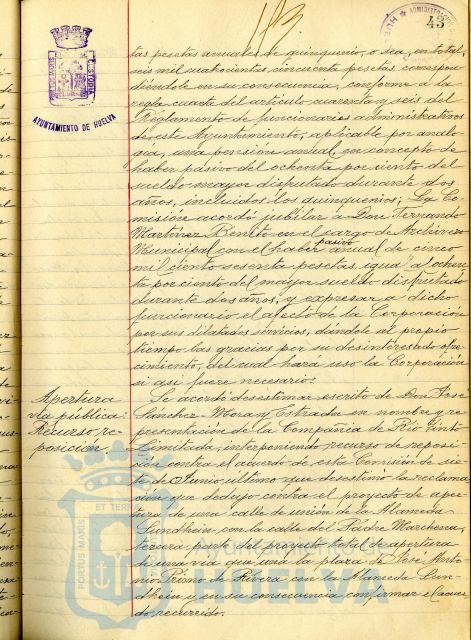 113
43
ADMINISTRA
HUE
PORTUS MARIS
CUSTODIA
AYUNTAMIENTO DE HUELVA
tas pesetas anuales de quinquenio, o sea, en total,
seis mil cuatrocientas cincuenta pesetas, correspon-
diéndole en su consecuencia, conforme a la
regla cuarta del artículo cuarenta y seis del
Reglamento de funcionarios administrativos
de este Ayuntamiento, aplicable por analo
gía, una pensión anual, en concepto de
haber pasivo del ochenta por ciento del
sueldo mayor disfrutado durante dos
años, incluidos los quinquenios; La Co
misión acordó jubilar a Don Fernando
Martínez Benito en el cargo de Archivero
Municipal con el haber pasivo anual de cinco
mil ciento sesenta pesetas, igual a ochen
ta por ciento del mayor sueldo disfrutado
durante dos años, y expresar a dicho
funcionario el afecto de la Corporación
por sus dilatados servicios, dándole al propio
tiempo las gracias por su desinteresado ofre
cimiento, del cual hará uso la Corporación
si así fuere necesario.
Apertura
vía pública:
Recurso re-
posición.
Se acordó desestimar escrito de Don José
Sánchez-Mora y Estrada en nombre y re
presentación de la Compañía de Río Tinto
Limitada, interponiendo recurso de reposi
ción contra el acuerdo de esta Comisión de sie
te de Junio último que desestimó la reclama
ción que dedujo contra el proyecto de aper
tura de una calle de unión de la Alameda
Sundheim con la calle del Padre Marchena,
tercera parte del proyecto total de apertura
de una vía que una la plaza de José Anto
nio Primo de Rivera con la Alameda Sun-
dheim y en su consecuencia confirmar el acuer
do recurrido.
PORTUS MARIS ET TERRAE
Ayuntamiento de
HUELVA